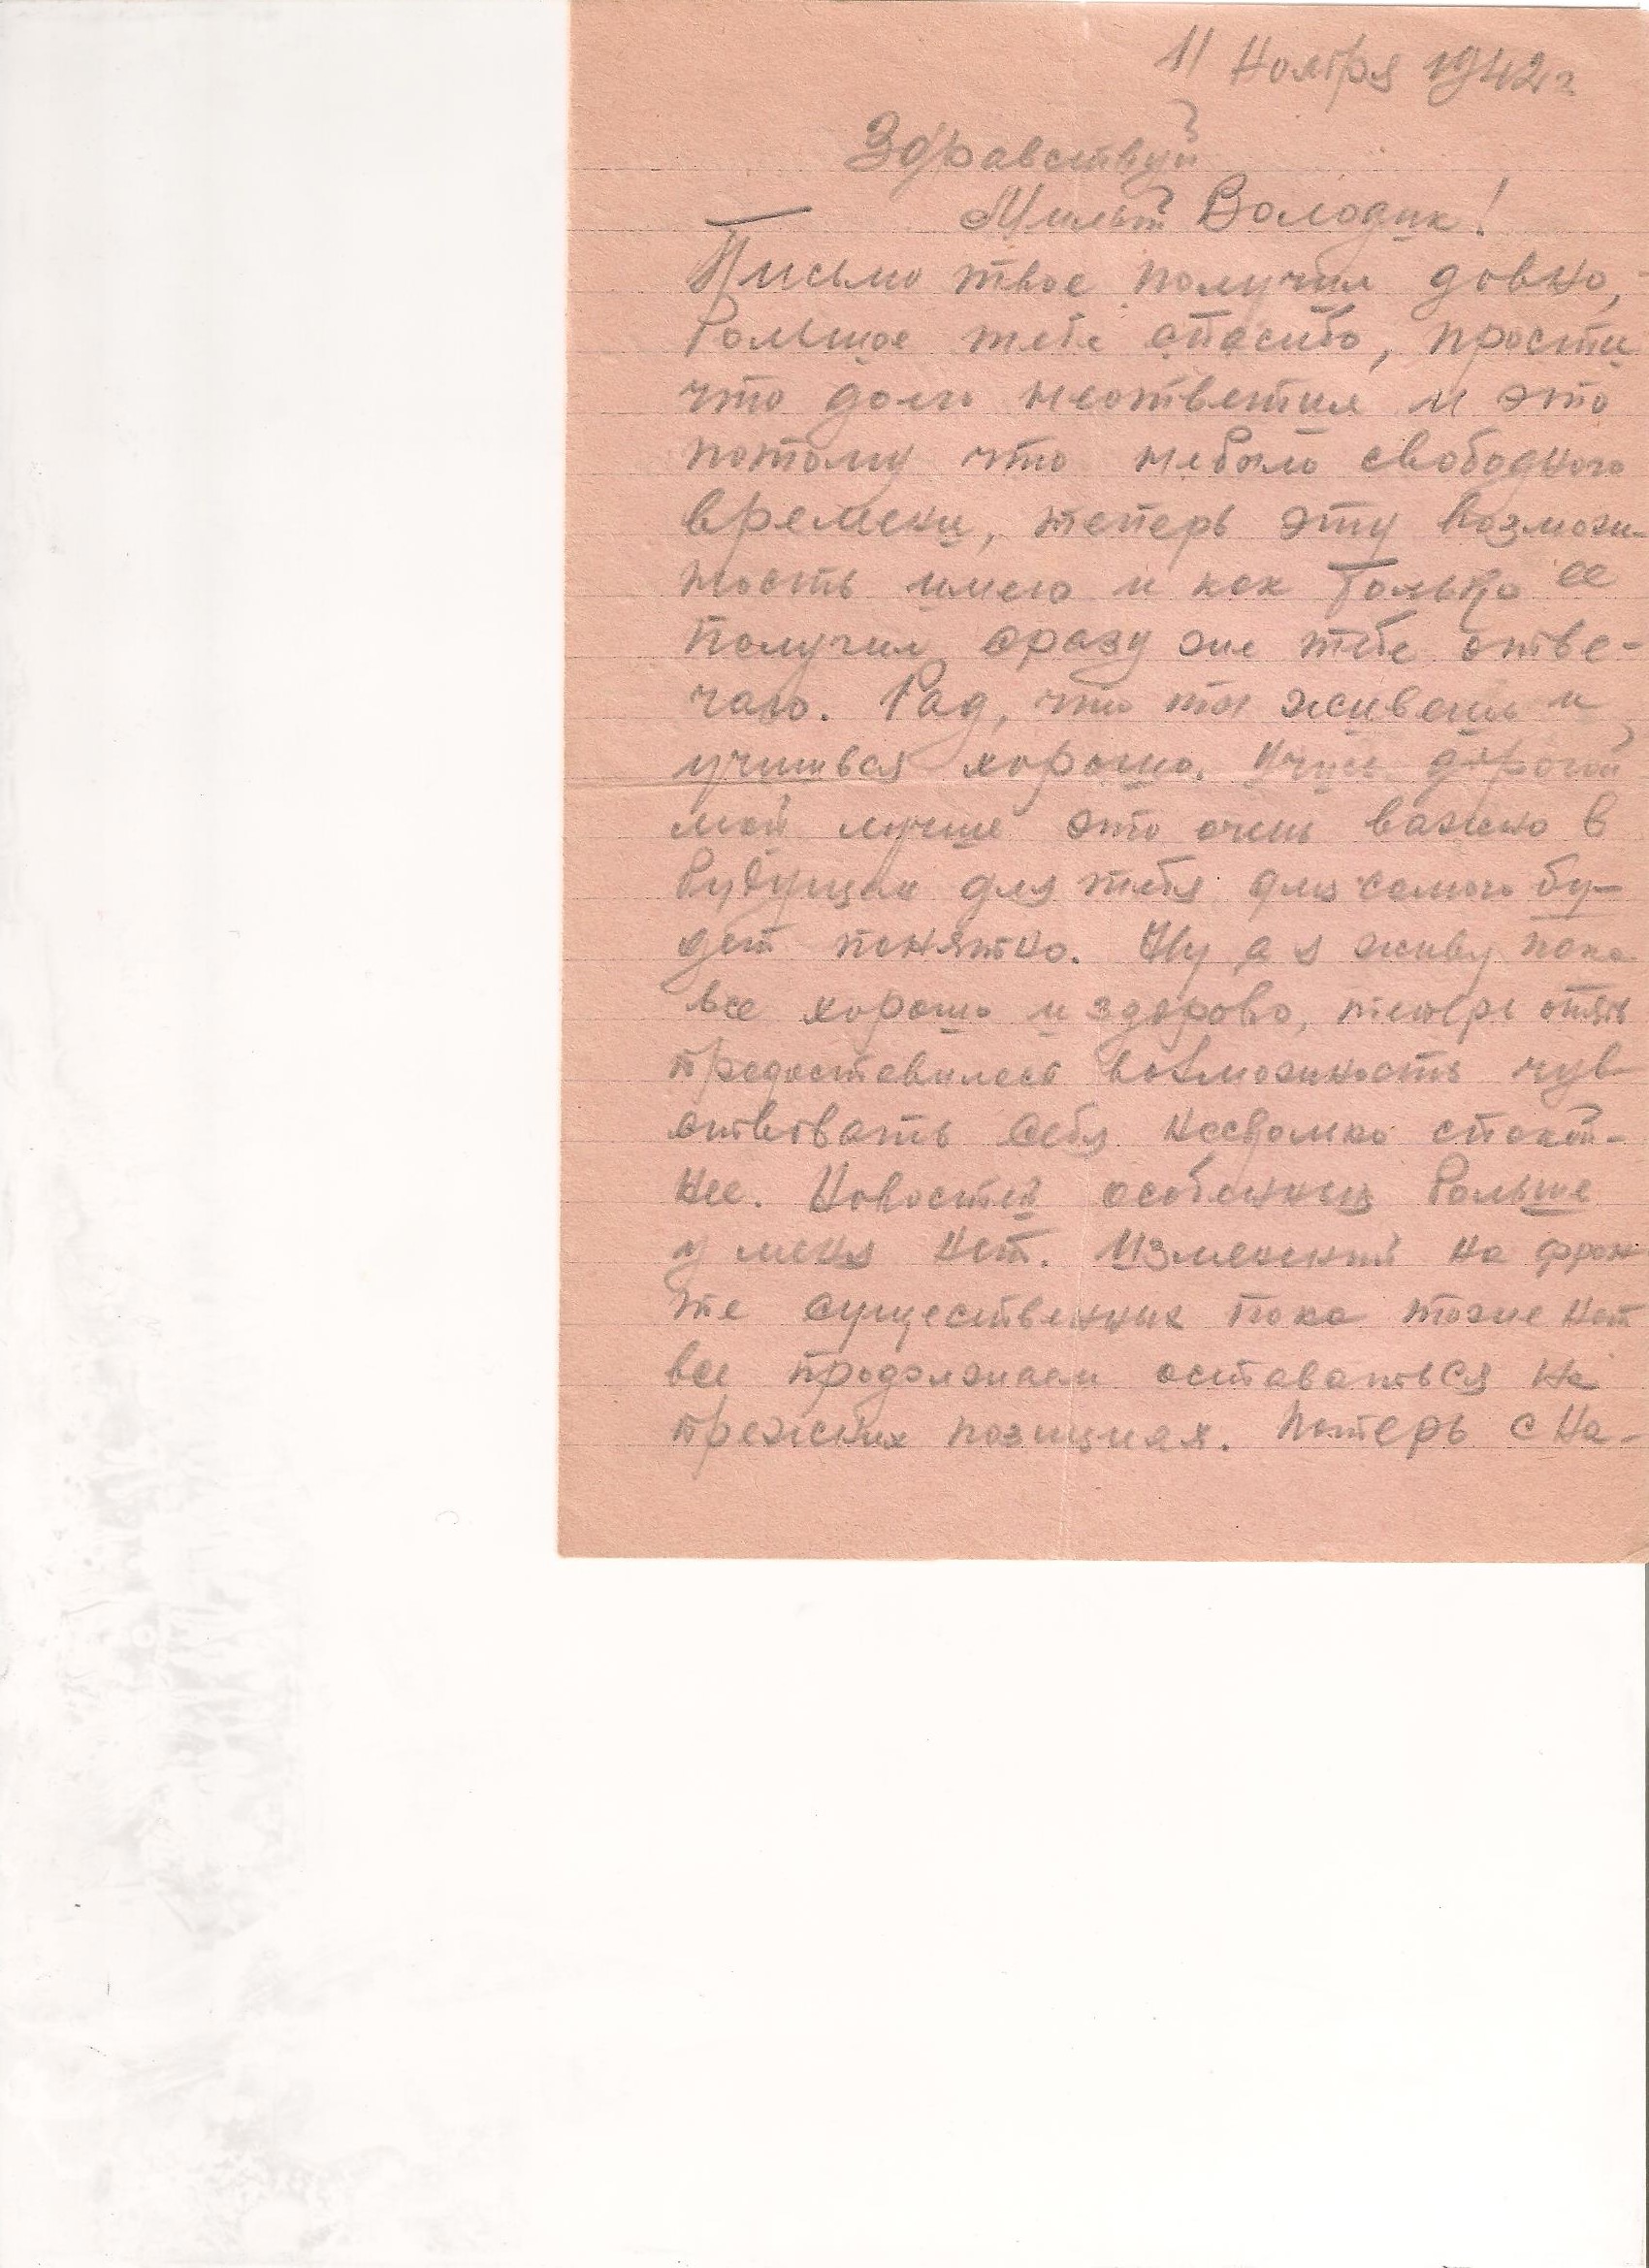 11 Ноября 1942 г
Здравствуй
Милый Володик!
Письмо твое получил довно,
большое тебе спасибо, прости
что долго неответил и это
потому что небыло свободного
времени, теперь эту возмож-
ность имею и как только ее
получил сразу же тебе отве-
чаю. Рад, что ты живешь и
учишься хорошо. Учись дорогой
мой лучше это очень важно в
будущем для тебя для самого бу-
дет понятно. Ну а я живу пока
все хорошо и здорово, теперь опять
предоставилась возможность чув
ствовать себя несколько спокой-
нее. Новостей особенных больше
у меня нет. Изменений на фрон
те существенных пока тоже нет
все продолжаем оставаться на
прежних позициях. Потерь с на-